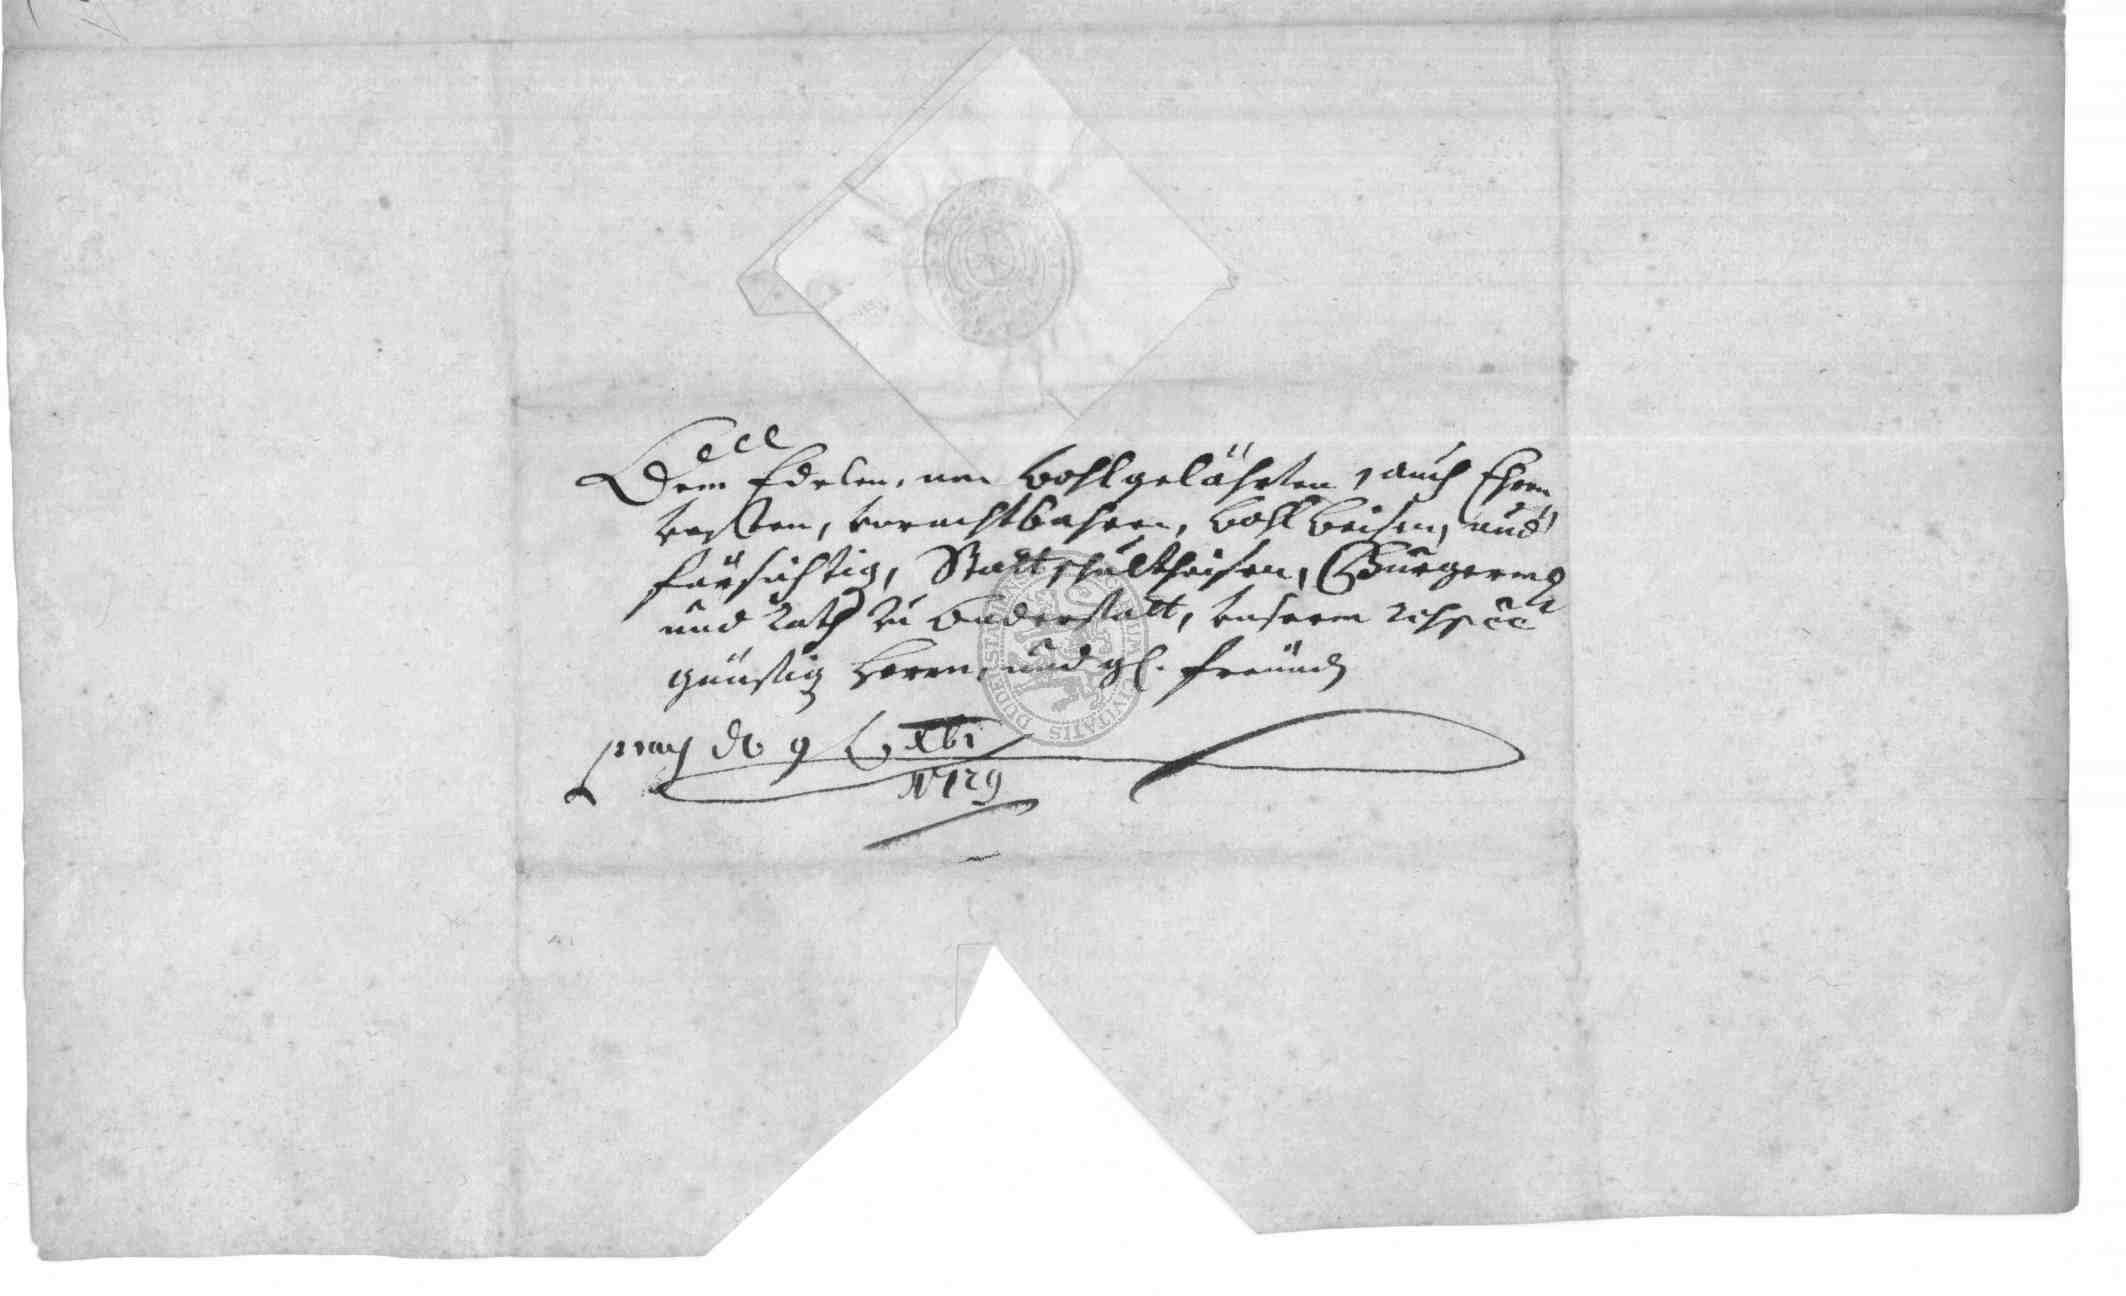 Dem Edelen, und Wohlgelährten, auch Ehren
vesten, vorachtbahren, Wohl Weisen, und
fürsichtig, Stattschultheisen, Bürgerm
und Rath zu Duderstatt, unserm resp
günstig Herrn, und gl. freünd
pray d 9 Xbr
1729
SIGILLUM CIVITATIS DUDERSTADT